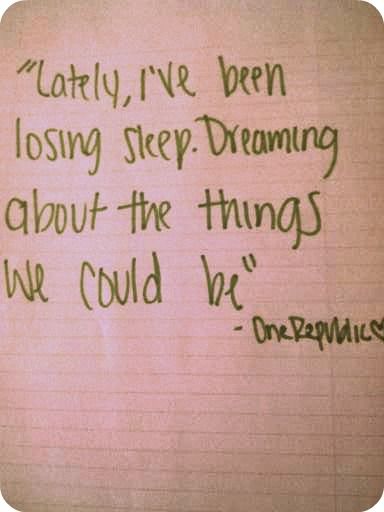 "Lately, I've been
losing sleep. Dreaming
about the things
we could be"
- OneRepublic♡